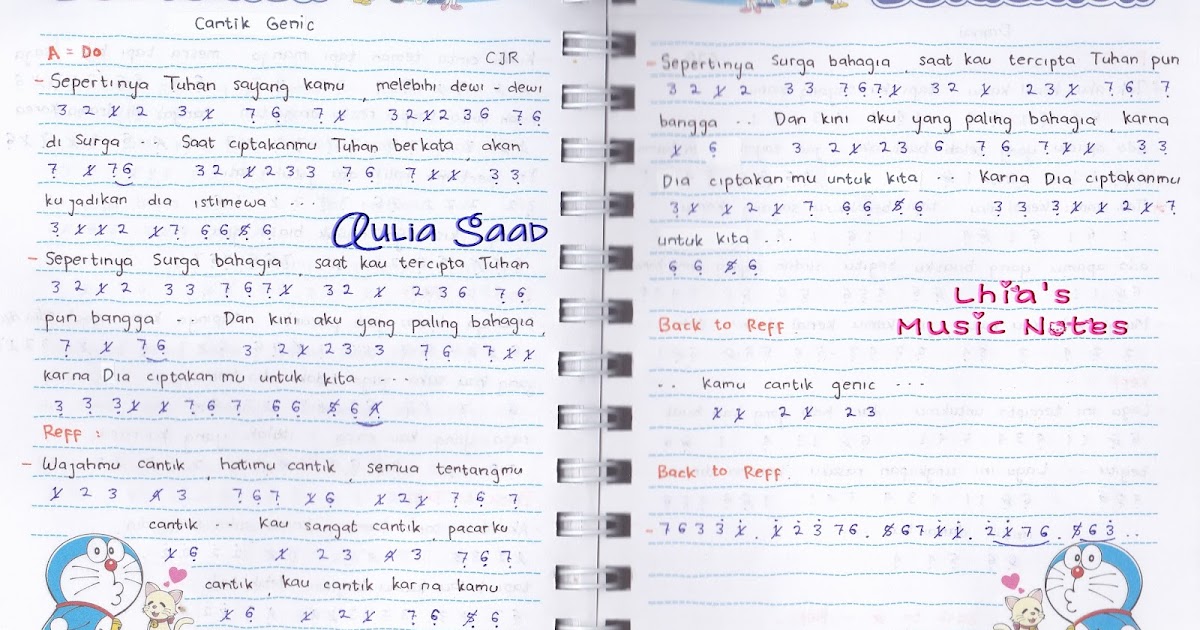 Cantik Genic
A = Do
CJR
- Sepertinya Tuhan sayang kamu, melebihi dewi - dewi
3 2 1̸ 2 3 1̸ 7 6 7 1̸ 3 2 1̸ 2 3 6 7 6
di Surga ... Saat ciptakanmu Tuhan berkata, akan
7 1̸ 7 6 3 2 1̸ 2 3 3 7 6 7 1̸ 1̸ 3 3
kujadikan dia istimewa ...
3 1̸ 1̸ 2 1̸ 7 6 6 5̸ 6
Aulia Saad
- Sepertinya Surga bahagia, saat kau tercipta Tuhan
3 2 1̸ 2 3 3 7 6 7 1̸ 3 2 1̸ 2 3 6 7 6
pun bangga ... Dan kini aku yang paling bahagia,
7 1̸ 7 6 3 2 1̸ 2 3 3 7 6 7 1̸ 1̸
karna Dia ciptakan mu untuk kita ...
3 3 3 1̸ 1̸ 7 6 7 6 6 5̸ 6 4̸
Reff :
- Wajahmu cantik, hatimu cantik, semua tentangmu
1̸ 2 3 4̸ 3 7 6 7 1̸ 6 1̸ 2 1̸ 7 6 7
cantik ... kau sangat cantik, pacarku
1̸ 6 1̸ 2 3 4̸ 3 7 6 7
cantik, kau cantik karna kamu
1̸ 6 1̸ 2 1̸ 7 6 5̸ 6
- Sepertinya Surga bahagia, saat kau tercipta Tuhan pun
3 2 1̸ 2 3 3 7 6 7 1̸ 3 2 1̸ 2 3 1̸ 7 6 7
bangga ... Dan kini aku yang paling bahagia, karna
1̸ 6 3 2 1̸ 2 3 6 7 6 7 1̸ 1̸ 3 3
Dia ciptakan mu untuk kita ... karna Dia ciptakanmu
3 1̸ 1̸ 2 1̸ 7 6 6 5̸ 6 3 3 3 1̸ 1̸ 2 1̸ 7
untuk kita ...
6 6 5̸ 6
Lhia's
Music Notes
Back to Reff :
.. kamu cantik genic ...
1̸ 1̸ 2 1̸ 2 3
Back to Reff.
- 7 6 3 3̇ 1̸̇ . 1̸̇ 2̇ 3̇ 7 6 . 5̸ 6 7 1̸̇ 1̸̇ . 2̇ 1̸̇ 7 6 . 5̸ 6 3̇ ..